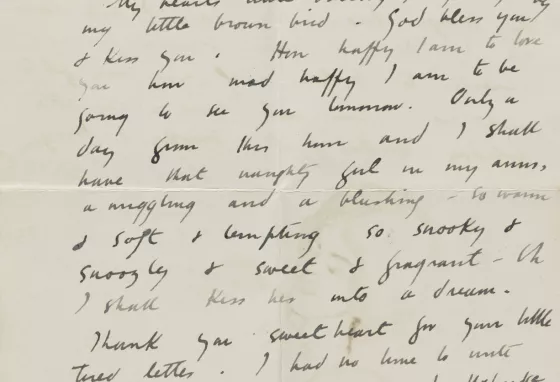 my little brown bird. God bless you
& kiss you. How happy I am to love
you how mad happy I am to be
going to see you tomorrow. Only a
day from this hour and I shall
have that naughty girl in my arms,
a wriggling and a blushing - so warm
& soft & tempting so snooky &
snoozley & sweet & fragrant - Oh
I shall kiss her into a dream.
Thank you sweetheart for your little
tired letter. I had no time to write